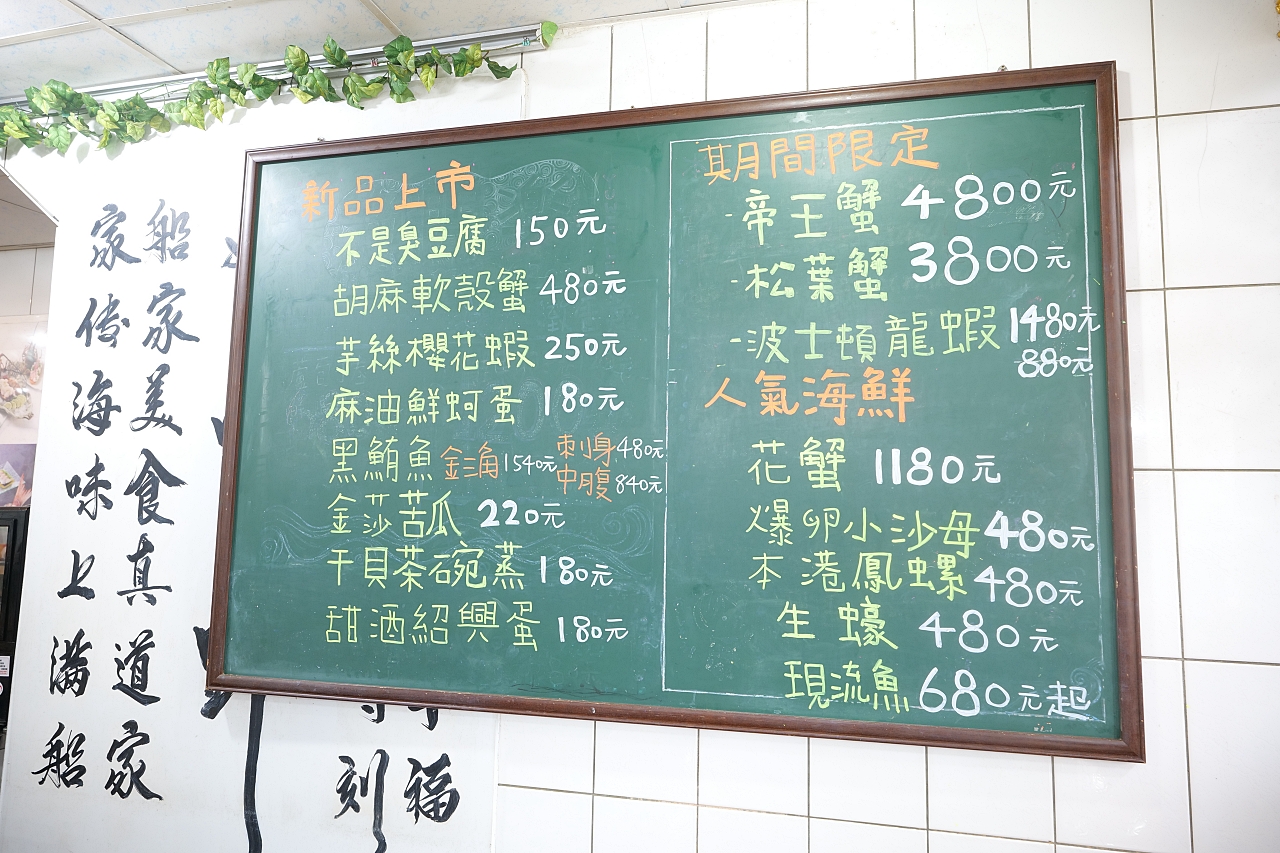 新品上市
不是臭豆腐 150元
胡麻軟殼蟹 480元
芋絲櫻花蝦 250元
麻油鮮蚵蛋 180元
黑鮪魚 金三角 1540元 刺身 480元
中腹 840元
金莎苦瓜 220元
干貝茶碗蒸 180元
甜酒紹興蛋 180元
期間限定
-帝王蟹 4800元
-松葉蟹 3800元
-波士頓龍蝦 1480元
880元
人氣海鮮
花蟹 1180元
爆卵小沙母 480元
本港鳳螺 480元
生蠔 480元
現流魚 680元起
船家美食真道家
家傳海味上滿船
福
刻